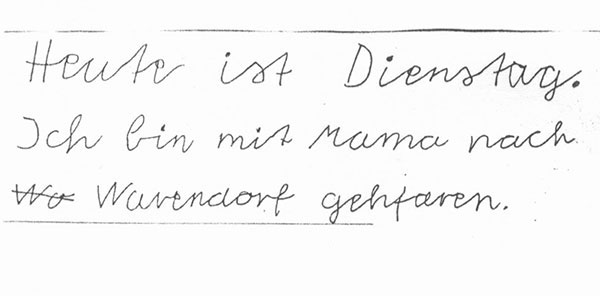 Heute ist Dienstag.
Ich bin mit Mama nach
Wa Warendorf gehfaren.